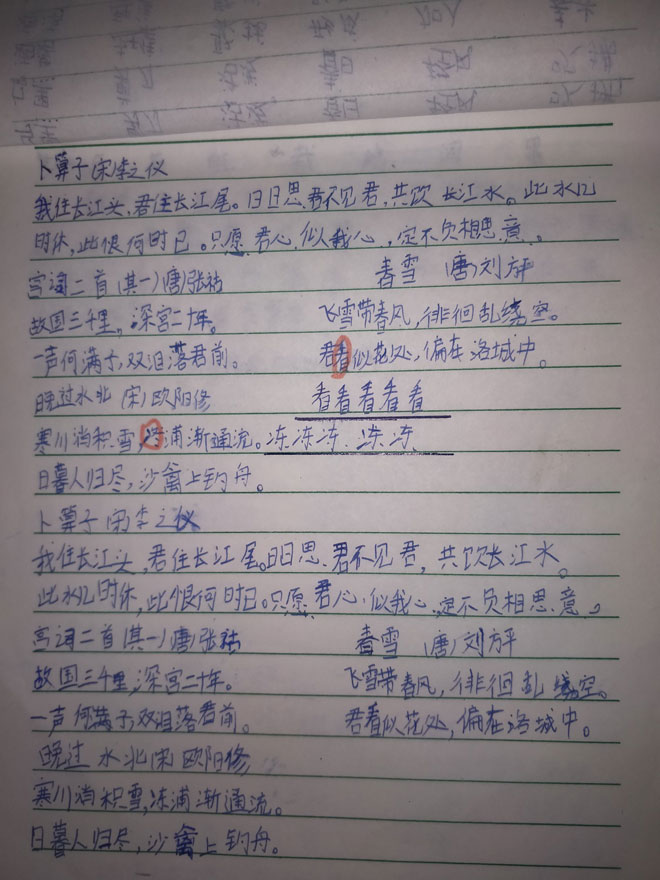 卜算子(宋)李之仪
我住长江头,君住长江尾。日日思君不见君,共饮长江水。此水几
时休,此恨何时已。只愿君心似我心,定不负相思意。
宫词二首(其一)(唐)张祜
春雪 (唐)刘方平
故国三千里,深宫二十年。
飞雪带春风,徘徊乱绕空。
一声何满子,双泪落君前。
君看似花处,偏在洛城中。
晚过水北 (宋)欧阳修
看看看看看
寒川消积雪,冻浦渐通流。冻冻冻冻冻
日暮人归尽,沙禽上钓舟。
卜算子(宋)李之仪
我住长江头,君住长江尾。日日思君不见君,共饮长江水。
此水几时休,此恨何时已。只愿君心似我心,定不负相思意。
宫词二首(其一)(唐)张祜
春雪 (唐)刘方平
故国三千里,深宫二十年。
飞雪带春风,徘徊乱绕空。
一声何满子,双泪落君前。
君看似花处,偏在洛城中。
晚过水北(宋)欧阳修
寒川消积雪,冻浦渐通流。
日暮人归尽,沙禽上钓舟。